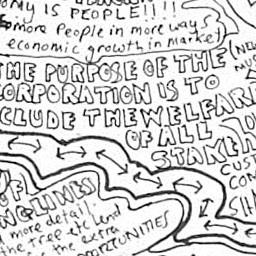 OMY IS PEOPLE!!!!
more People in more ways
economic growth in market
THE PURPOSE OF THE
CORPORATION IS TO
CLUDE THE WELFARE
OF ALL
STAKE
CUST
CON
SH
OF
NG LINES
more detail.
the tree etc Lend
the extra
OPPORTUNITIES